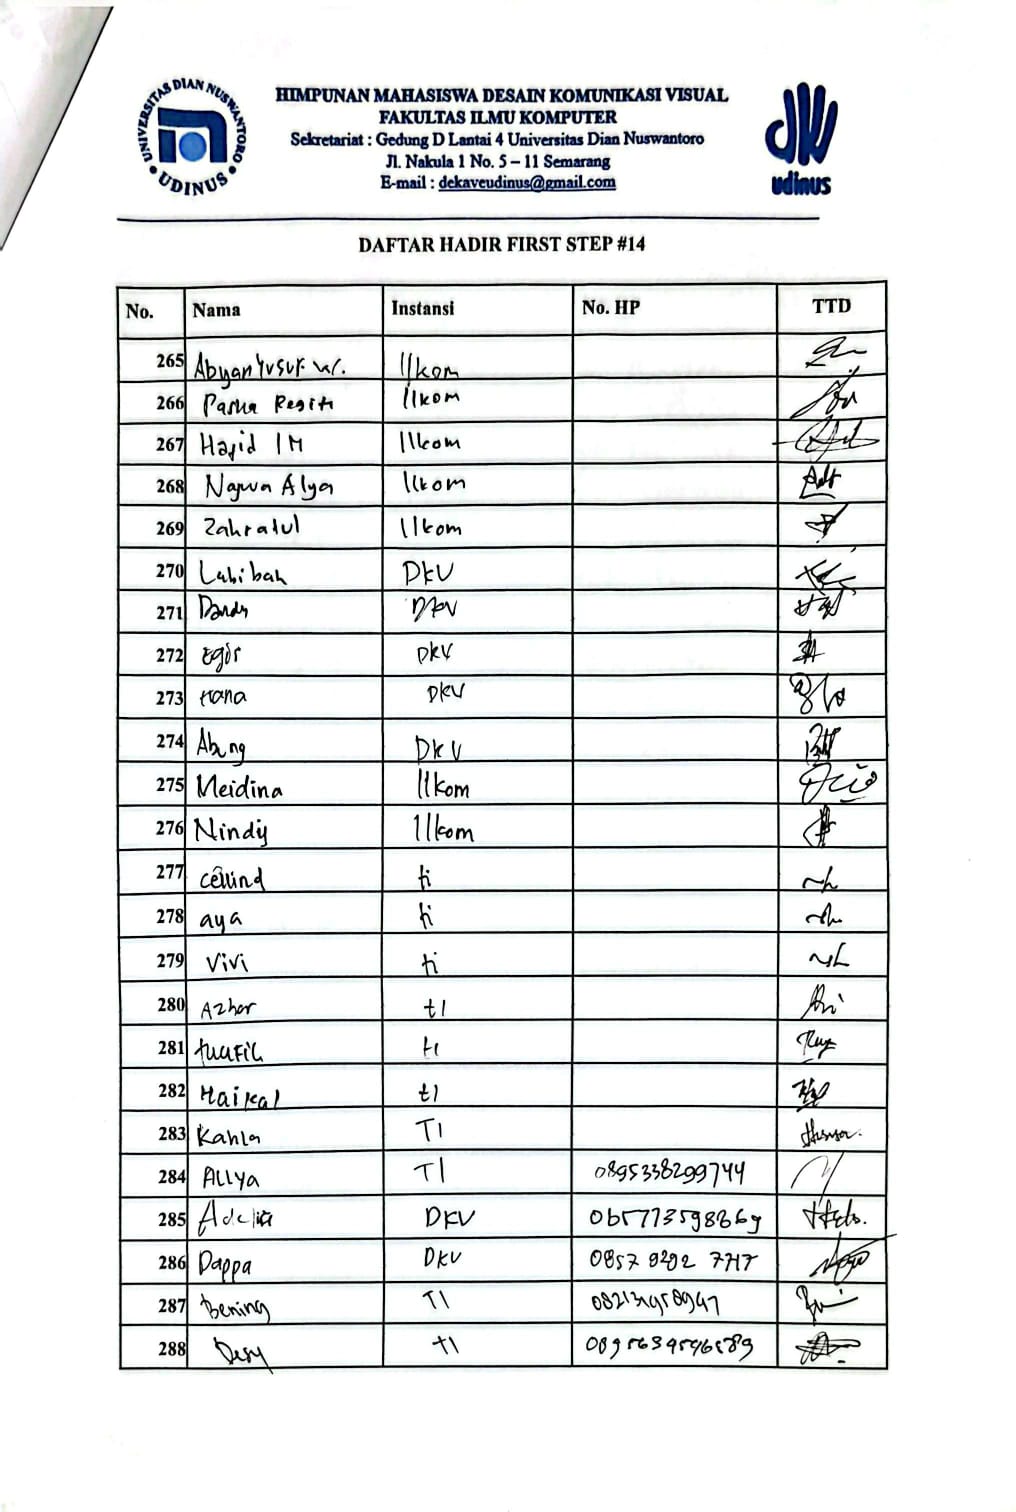 UNIVERSITAS DIAN NUSWANTORO
• UDINUS •
HIMPUNAN MAHASISWA DESAIN KOMUNIKASI VISUAL
FAKULTAS ILMU KOMPUTER
Sekretariat : Gedung D Lantai 4 Universitas Dian Nuswantoro
Jl. Nakula 1 No. 5 – 11 Semarang
E-mail : dekaveudinus@gmail.com
udinus
DAFTAR HADIR FIRST STEP #14
No. Nama Instansi No. HP TTD
265 Abyan Yusuf W. Ilkom
266 Ilkom
267 Hafid IM Ilkom
268 Najwa Alya Ilkom
269 Zahratul Ilkom
270 Labibah DKV
271 Dandy DKV
272 DKV
273 Hana DKV
274 Abung DKV
275 Meidina Ilkom
276 Nindy Ilkom
277 ti
278 aya ti
279 Vivi ti
280 Azhar tI
281 tI
282 Haikal tI
283 Kahla TI
284 Allya TI 0895338299744
285 Adelia DKV
286 Dappa DKV 0857 9292 7717
287 Bening TI
288 Desy tI